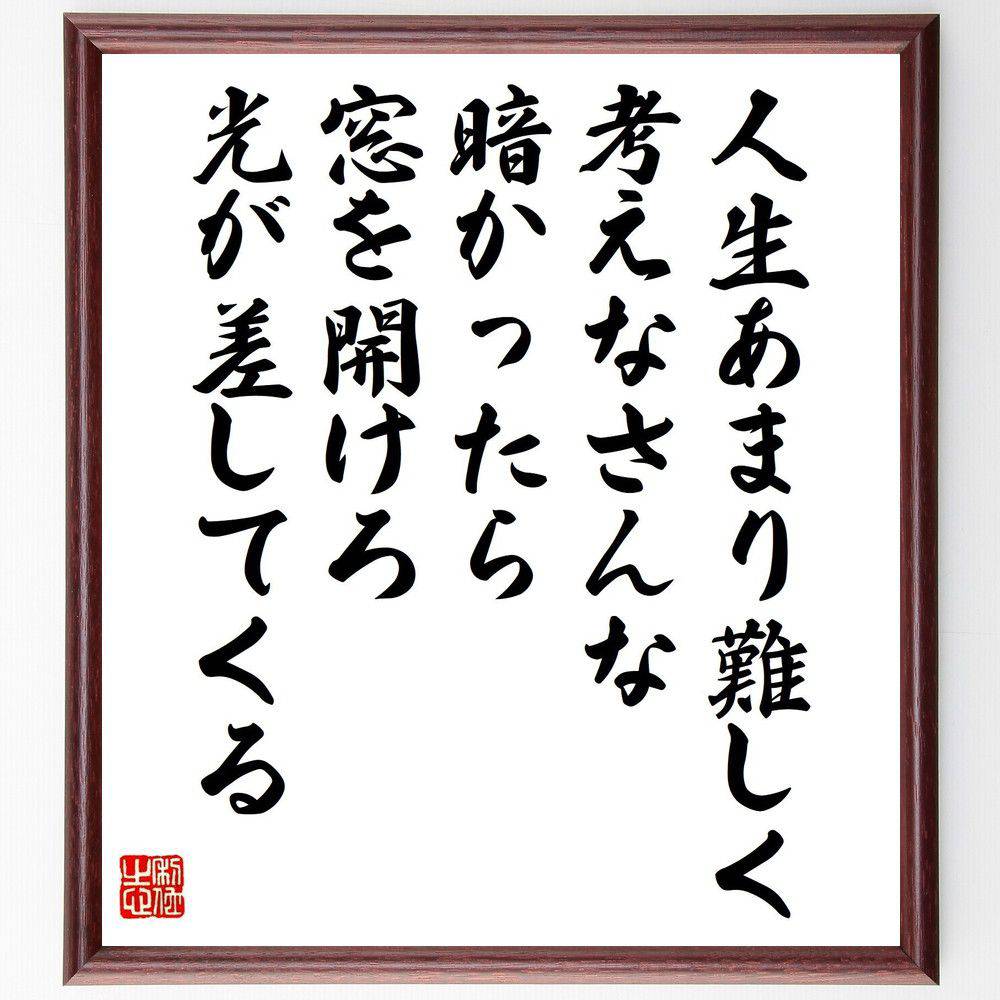 人生あまり難しく
考えなさんな
暗かったら
窓を開けろ
光が差してくる